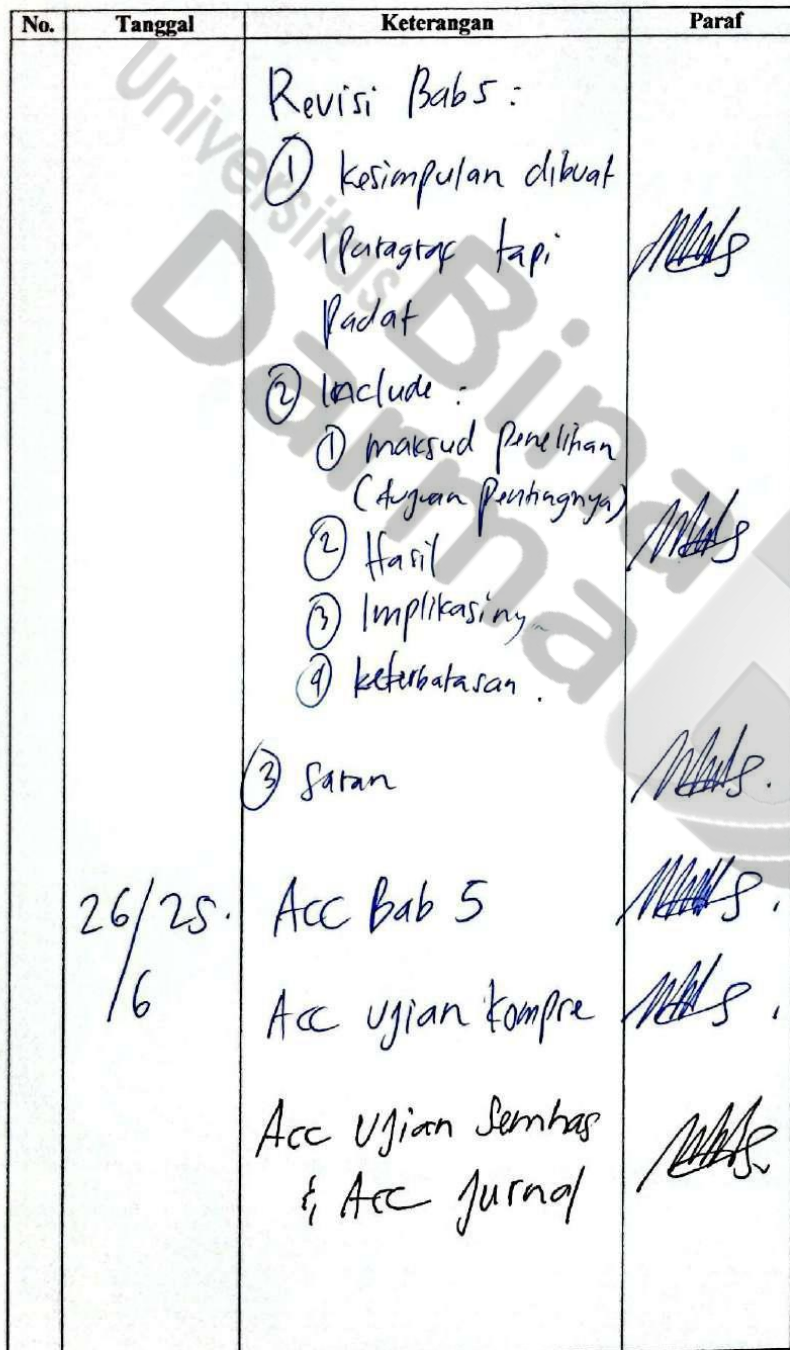 No. Tanggal Keterangan Paraf
Universitas
Bina
Darma
Revisi Bab 5 :
① kesimpulan dibuat
1 Paragraf tapi
Padat
② Include :
① maksud penelitian
(tujuan pentingnya)
② Hasil
③ Implikasiny
④ keterbatasan .
③ Saran
26/25. Acc Bab 5
/6 Acc Ujian kompre
Acc Ujian Semhas
& Acc Jurnal